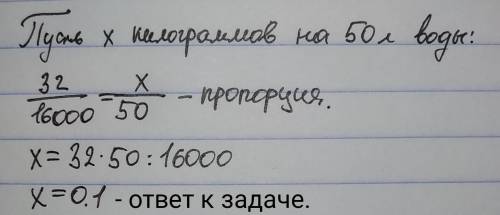 Пусть x килограммов на 50л воды:
32/16000 = x/50 – пропорция.
x = 32·50:16000
x = 0.1 - ответ к задаче.